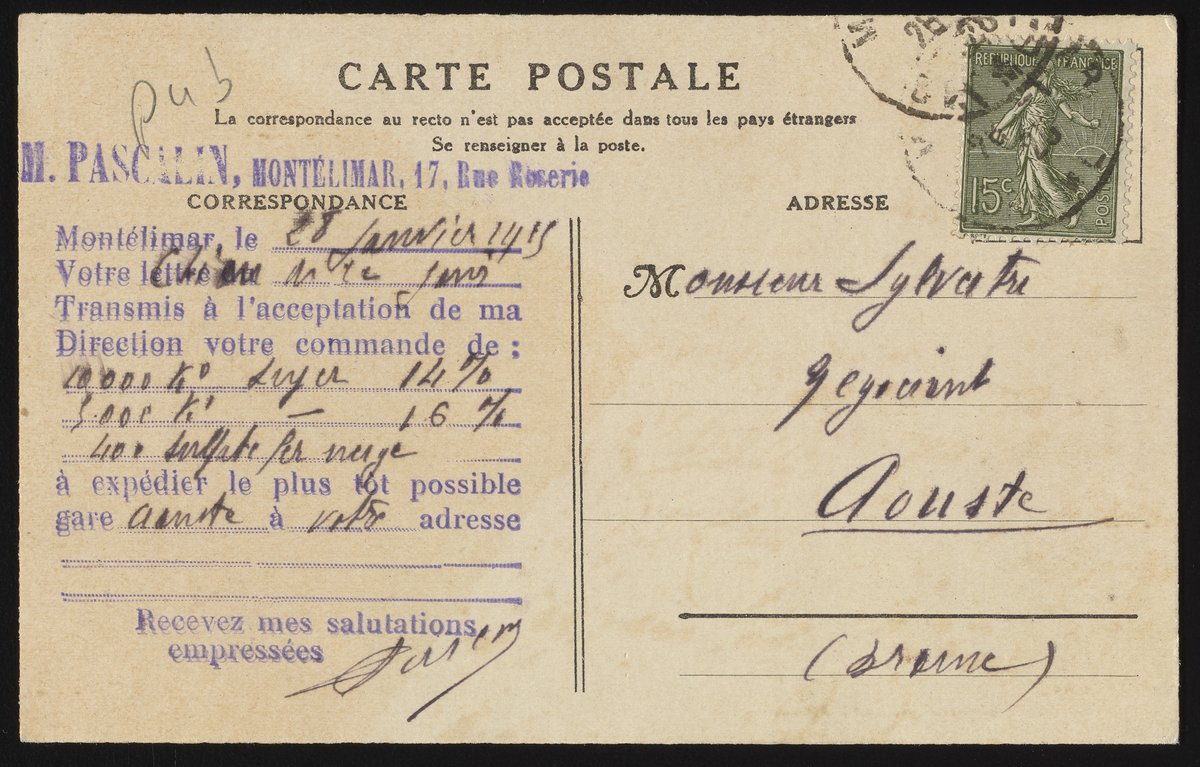 pub
CARTE POSTALE
La correspondance au recto n'est pas acceptée dans tous les pays étrangers
Se renseigner à la poste.
M. PASCALIN, MONTÉLIMAR, 17, Rue Roserie
CORRESPONDANCE
ADRESSE
REPUBLIQUE FRANCAISE
15c
POSTES
Montélimar, le 28 Janvier
Votre lettre du
Transmis à l'acceptation de ma
Direction votre commande de :
10.000 Ko super 14 %
5.000 Ko — 16 %
400 sulfate fer neige
à expédier le plus tôt possible
gare aouste à votre adresse
Recevez mes salutations
empressées
Monsieur Sylvestre
Negociant
Aouste
(Drome)